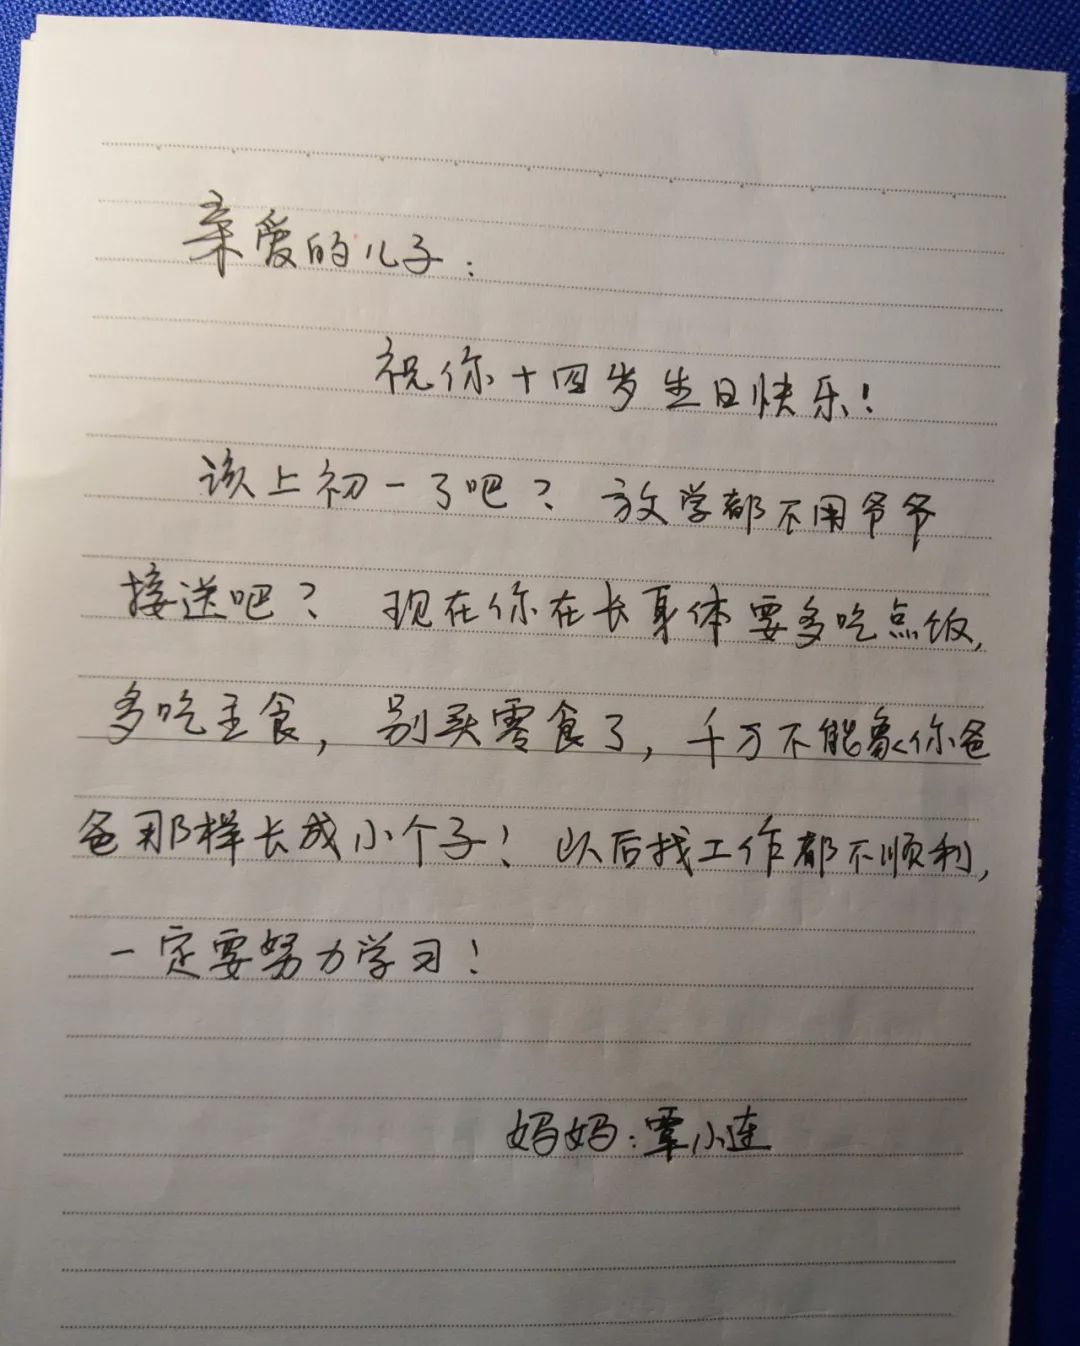 亲爱的儿子：
祝你十四岁生日快乐！
该上初一了吧？放学都不用爷爷
接送吧？现在你在长身体要多吃点饭，
多吃主食，别买零食了，千万不能象你爸
爸那样长成小个子！以后找工作都不顺利，
一定要努力学习！
妈妈：覃小连